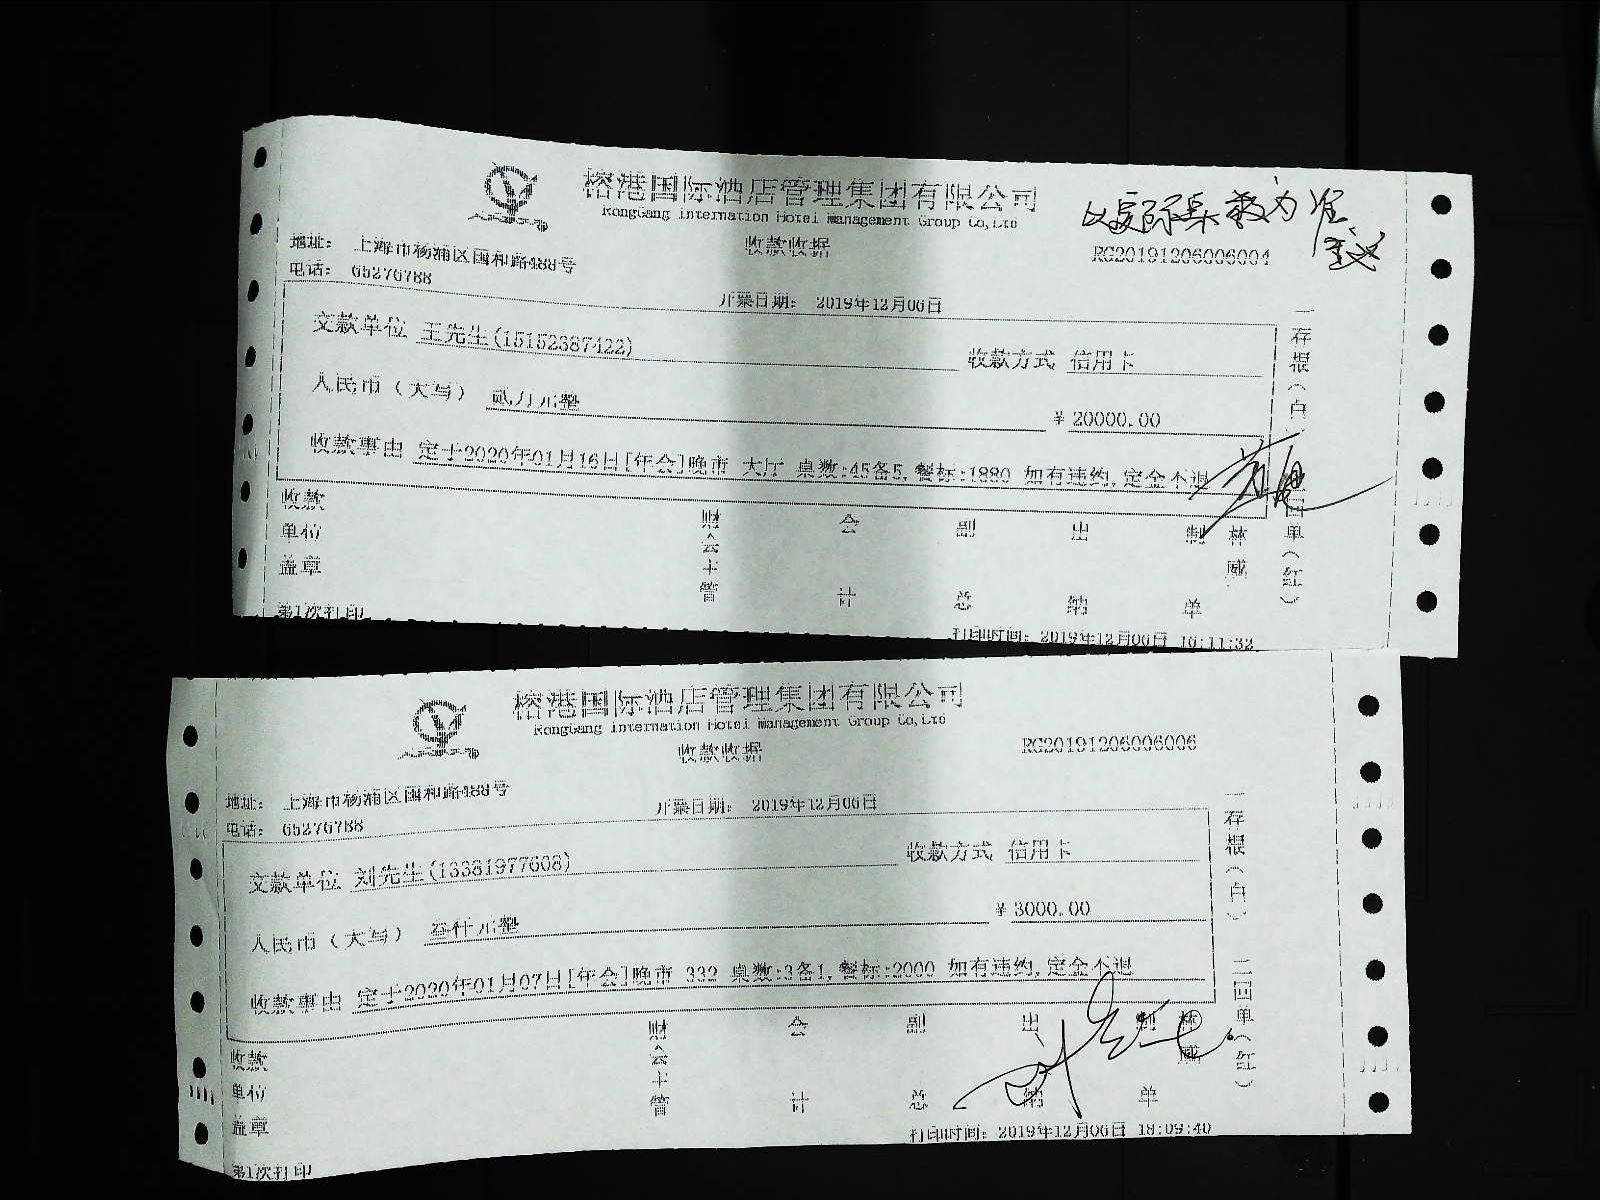 榕港国际酒店管理集团有限公司
RongGang Internation Hotel Management Group Co,Ltd
以实际桌数为准
收款收据
RG20191206006004
地址： 上海市杨浦区国和路488号
电话： 65276788
开票日期： 2019年12月06日
交款单位 王先生(15152387422)
收款方式 信用卡
人民币（大写） 贰万元整
¥ 20000.00
收款事由 定于2020年01月16日[年会]晚市 大厅 桌数:45备5,餐标:1880 如有违约,定金不退
一存根（白）
二回单（红）
收款单位盖章
财会主管
会计
副总
出纳
制单
林威
第1次打印
打印时间: 2019年12月06日 16:11:32
榕港国际酒店管理集团有限公司
RongGang Internation Hotel Management Group Co,Ltd
收款收据
RG20191206006006
地址： 上海市杨浦区国和路488号
电话： 65276788
开票日期： 2019年12月06日
交款单位 刘先生(13381977608)
收款方式 信用卡
人民币（大写） 叁仟元整
¥ 3000.00
收款事由 定于2020年01月07日[年会]晚市 332 桌数:3备1,餐标:2000 如有违约,定金不退
一存根（白）
二回单（红）
收款单位盖章
财会主管
会计
副总
出纳
制单
林威
第1次打印
打印时间: 2019年12月06日 18:09:40